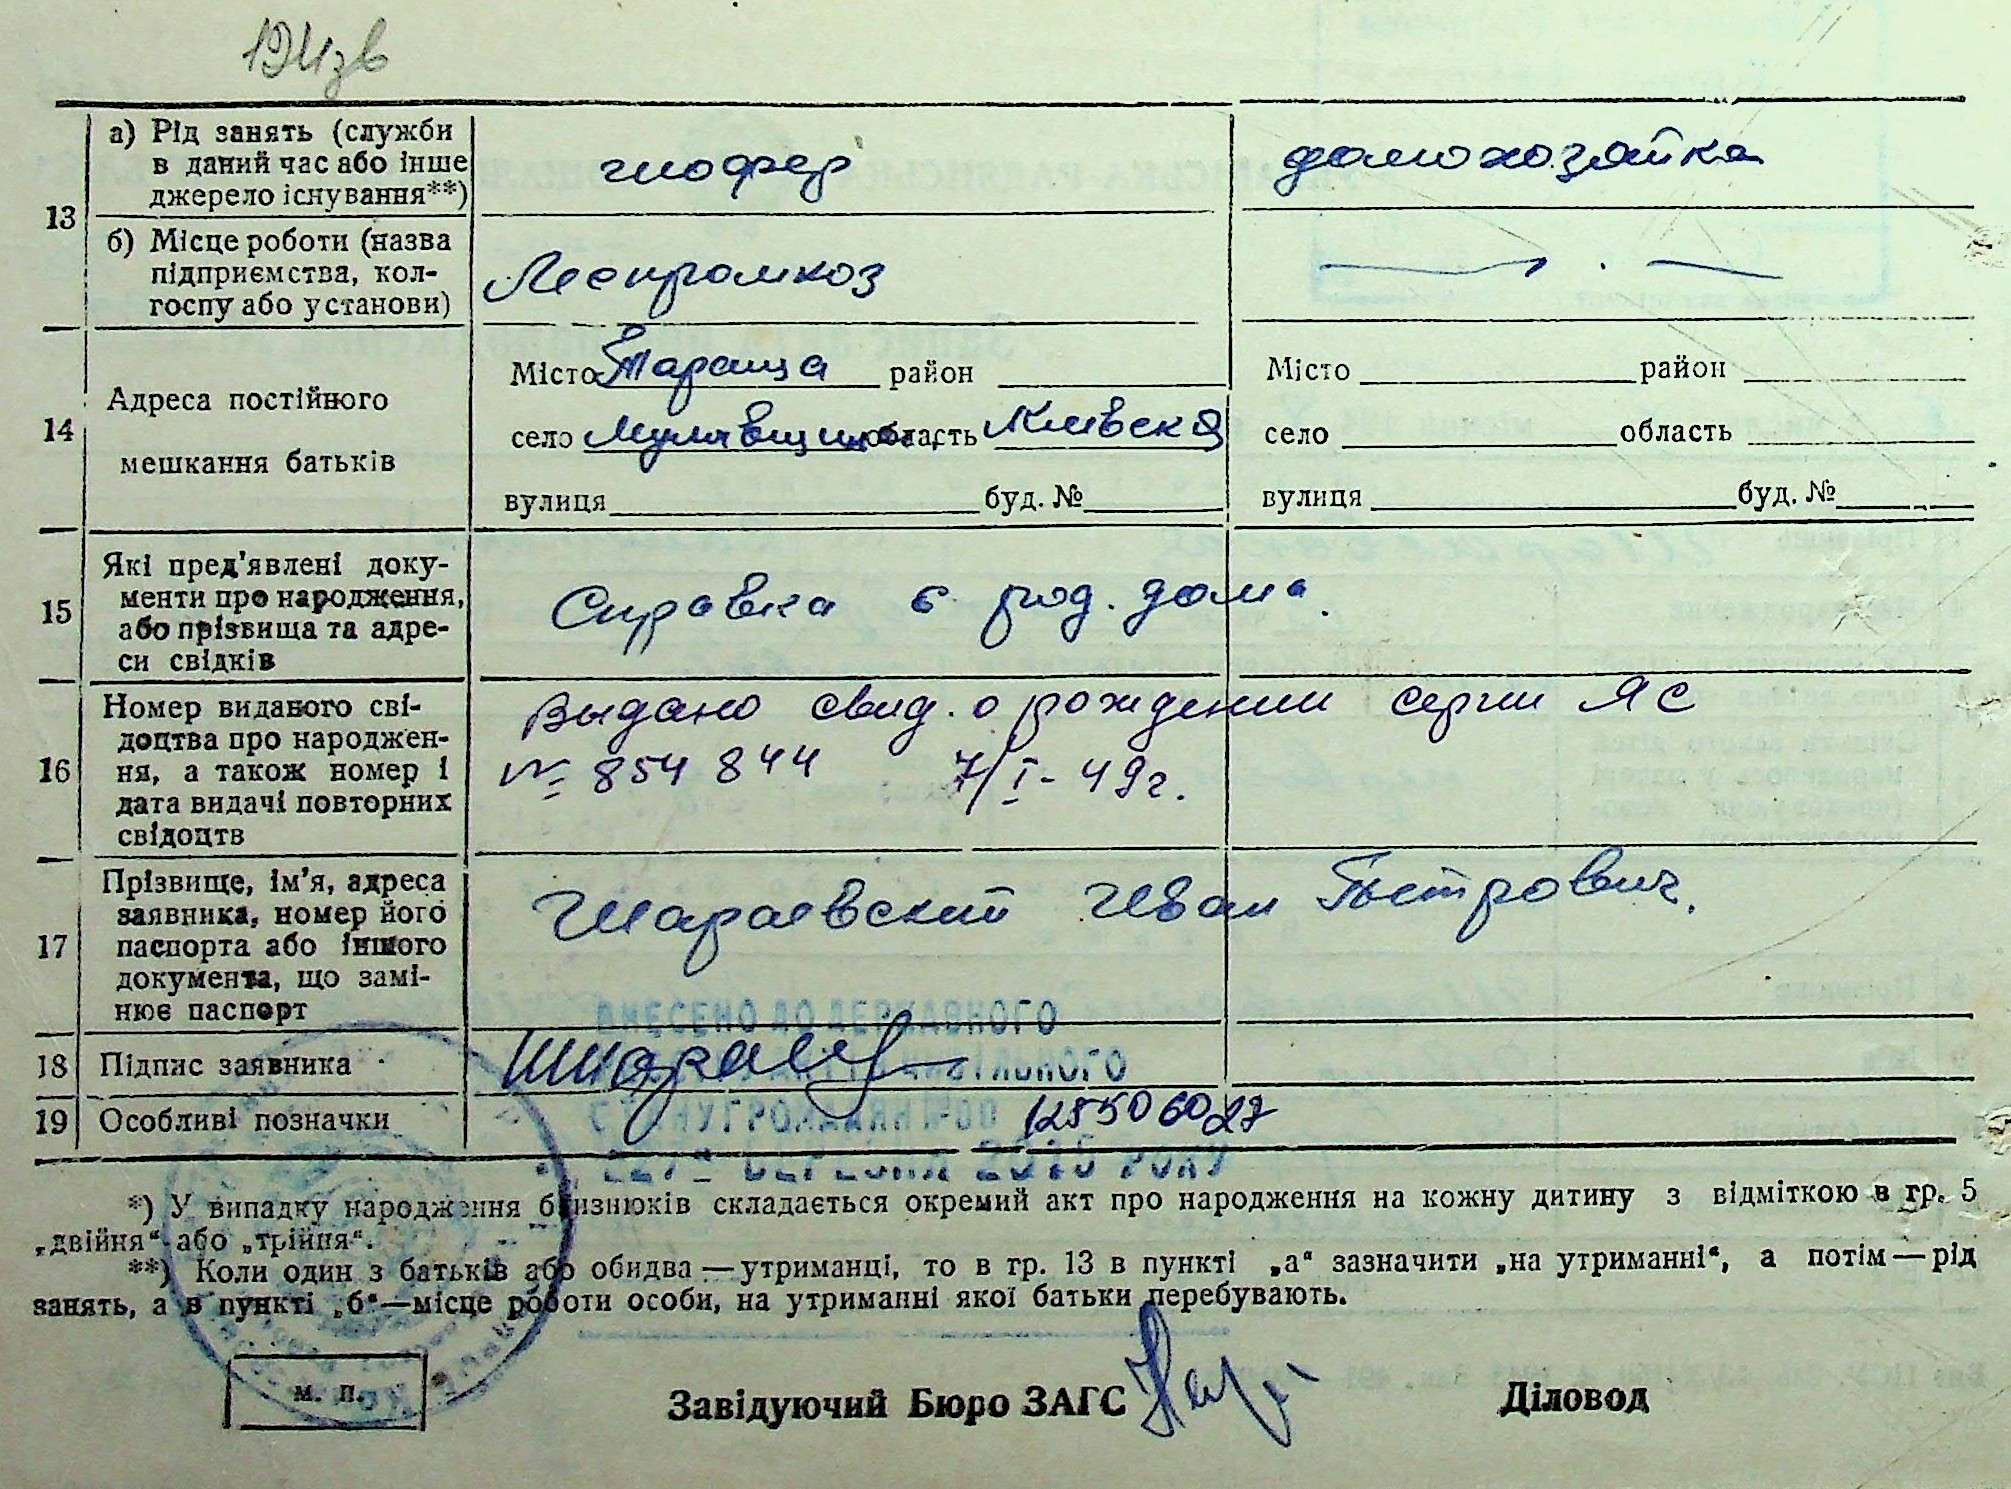 194зв
13
а) Рід занять (служби
в даний час або інше
джерело існування**)
шофер
домохозяйка
б) Місце роботи (назва
підприємства, кол-
госпу або установи)
Леспромхоз
14
Адреса постійного
мешкання батьків
Місто Тараща район
село область Киевская
вулиця буд. №
Місто район
село область
вулиця буд. №
15
Які пред'явлені доку-
менти про народження,
або прізвища та адре-
си свідків
Справка с род. дома.
16
Номер виданого сві-
доцтва про народжен-
ня, а також номер і
дата видачі повторних
свідоцтв
Выдано свид. о рождении серии ЯС
№ 854 844 7/I-49г.
17
Прізвище, ім'я, адреса
заявника, номер його
паспорта або іншого
документа, що замі-
нює паспорт
Шараевский Иван Петрович.
ВНЕСЕНО ДО ДЕРЖАВНОГО
18
Підпис заявника
19
Особливі позначки
СТАНУ ГРОМАДЯН №00 125506027
*) У випадку народження близнюків складається окремий акт про народження на кожну дитину з відміткою в гр. 5
„двійня“ або „трійня“.
**) Коли один з батьків або обидва — утриманці, то в гр. 13 в пункті „а“ зазначити „на утриманні“, а потім — рід
занять, а в пункті „б“—місце роботи особи, на утриманні якої батьки перебувають.
м. п.
Завідуючий Бюро ЗАГС
Діловод